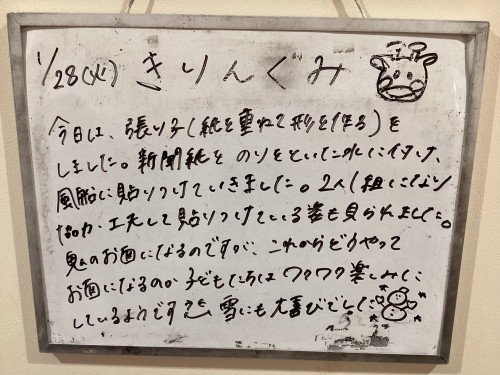 1/28(火) きりんぐみ
今日は、張り子(紙を重ねて形を作る)を
しました。新聞紙を のりをといた水につけ、
風船に貼りつけていきました。2人1組になり
ながら 工夫して貼りつけている姿も見られました。
鬼のお面になるのですが、これからどうやって
お面になるのか 子どもたちは ワクワク楽しみに
しているようです 雪にも大喜びでした